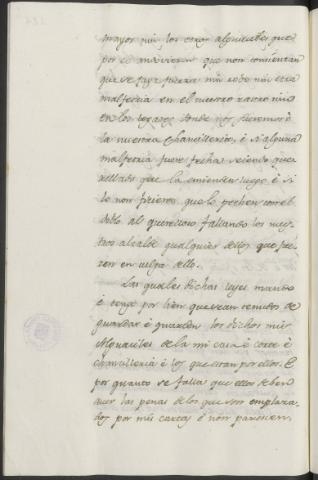 mayor nin los otros alguaciles que
por el anduvieren que non consientan
que se faga fuerza nin robo nin otra
malfetria en el nuestro rastro nin
en los logares donde nos fueremos ó
la nuestra Chancilleria, é si alguna
malfetria fuere fecha seiendo que-
rellado que la emienden luego é si
lo non ficieren que lo pechen con el
doblo al querelloso fallando los nues-
tros alcaldes qualquier dellos que fue-
ren en culpa dello.
Las quales dichas leyes mando
é tengo por bien que sean tenudos de
guardar é guarden los dichos mis
Alguaciles de la mi casa é corte é
chancilleria é los que estan por ellos. E
por quanto se falla que ellos deben
aver las penas de los que son emplaza-
dos por mis cartas é non parescen,